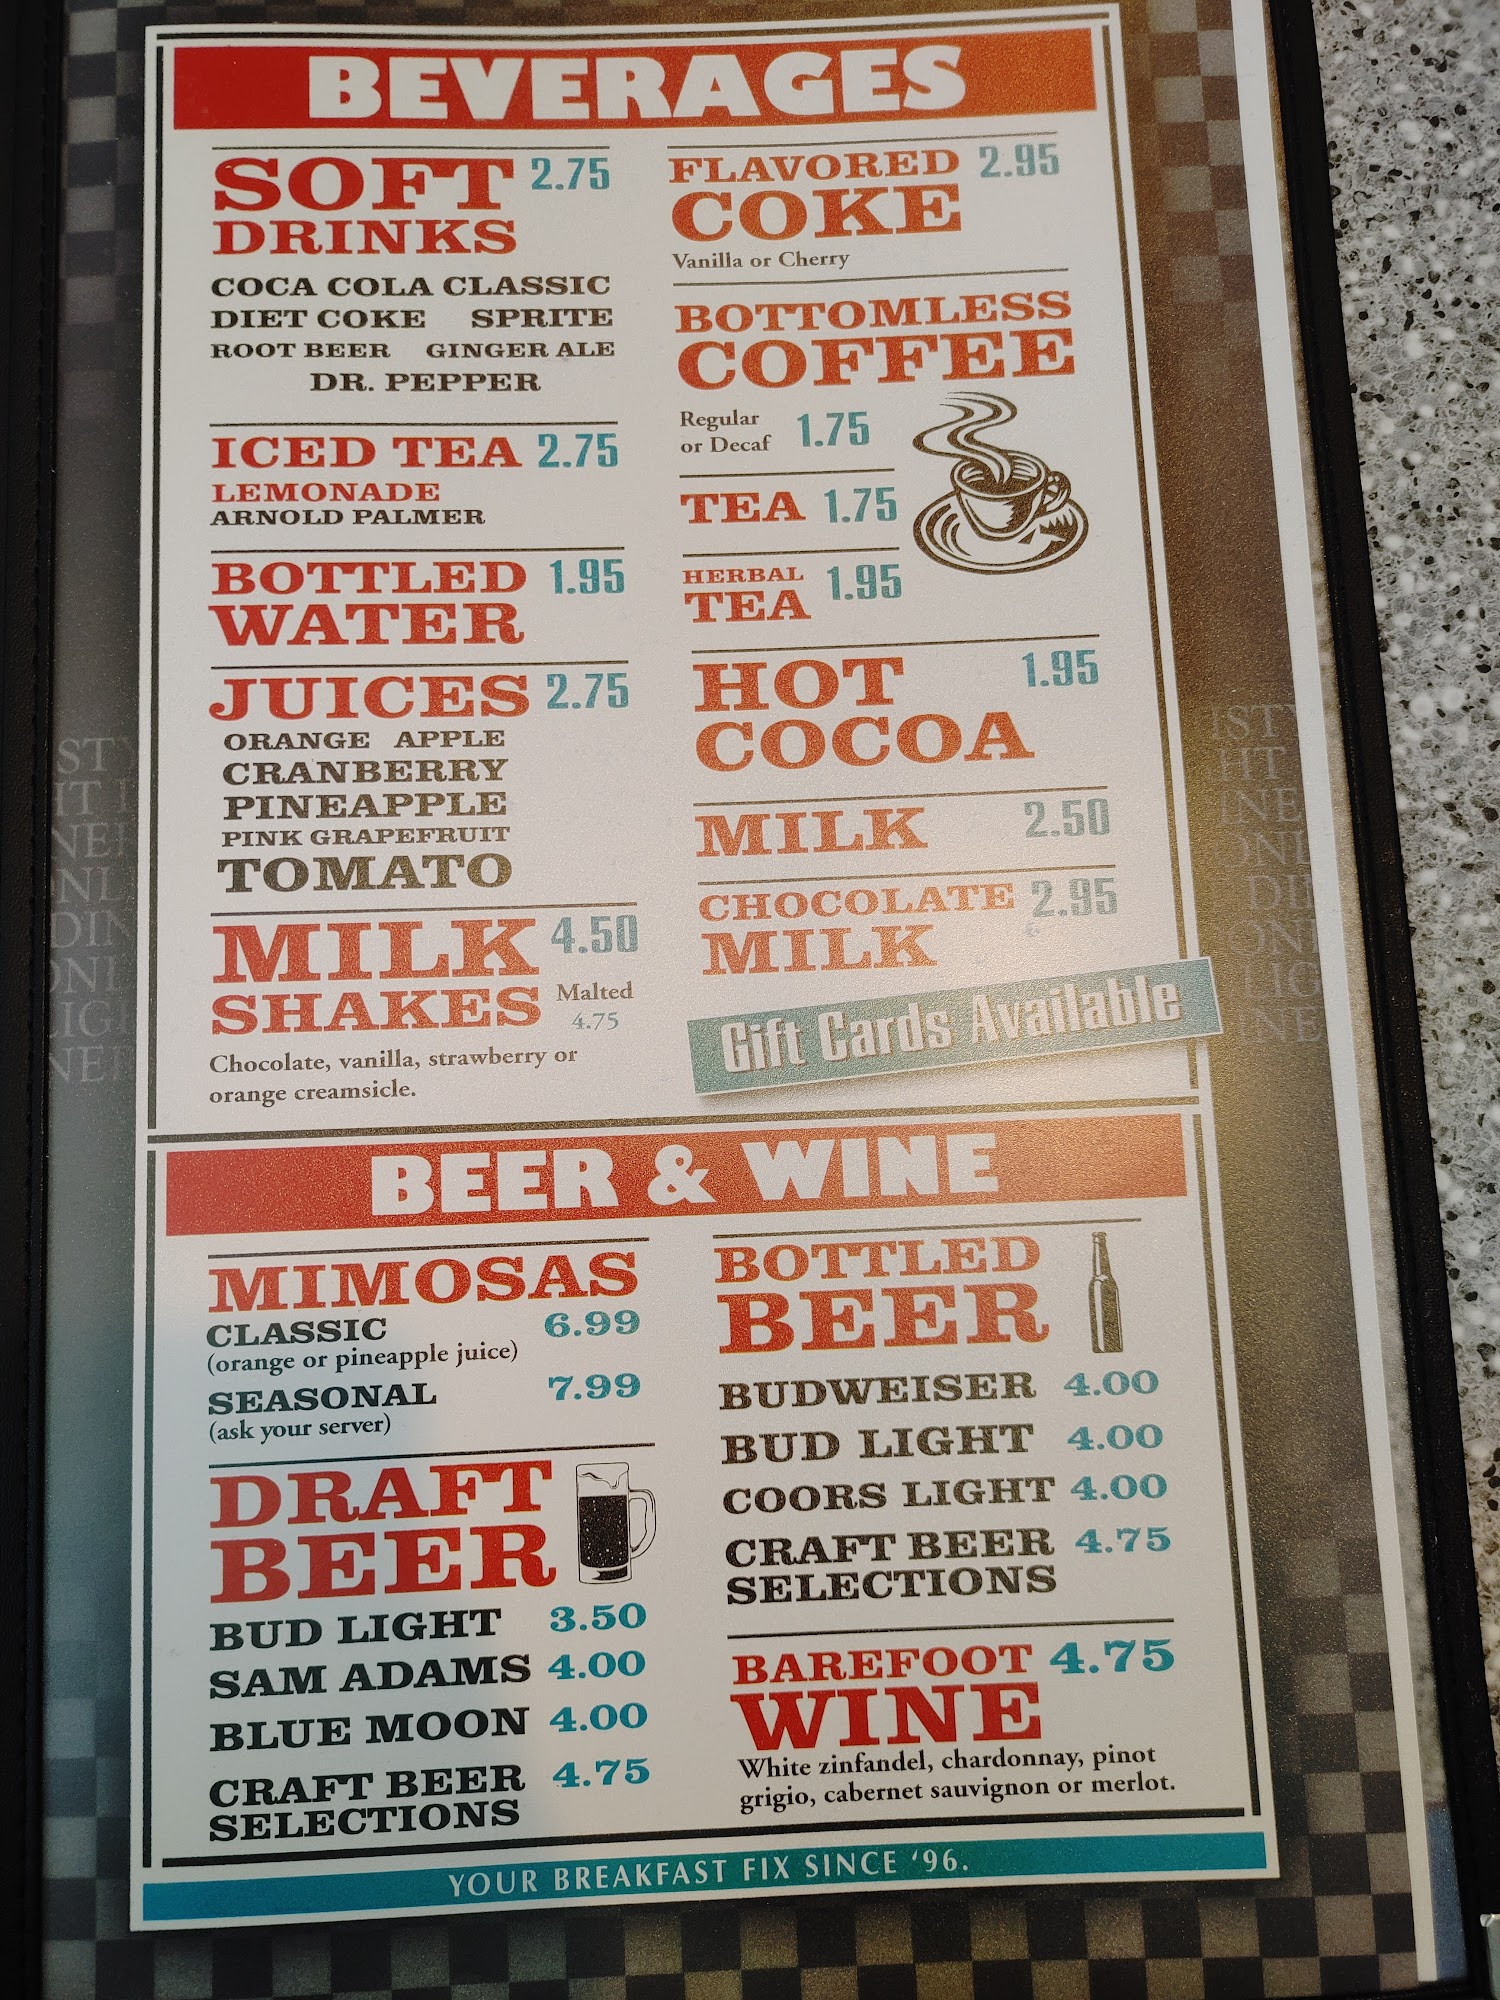 BEVERAGES
SOFT 2.75
DRINKS
COCA COLA CLASSIC
DIET COKE SPRITE
ROOT BEER GINGER ALE
DR. PEPPER
ICED TEA 2.75
LEMONADE
ARNOLD PALMER
BOTTLED 1.95
WATER
JUICES 2.75
ORANGE APPLE
CRANBERRY
PINEAPPLE
PINK GRAPEFRUIT
TOMATO
MILK 4.50
SHAKES Malted
4.75
Chocolate, vanilla, strawberry or
orange creamsicle.
FLAVORED 2.95
COKE
Vanilla or Cherry
BOTTOMLESS
COFFEE
Regular
or Decaf 1.75
TEA 1.75
HERBAL 1.95
TEA
HOT 1.95
COCOA
MILK 2.50
CHOCOLATE 2.95
MILK
Gift Cards Available
BEER & WINE
MIMOSAS
CLASSIC 6.99
(orange or pineapple juice)
SEASONAL 7.99
(ask your server)
DRAFT
BEER
BUD LIGHT 3.50
SAM ADAMS 4.00
BLUE MOON 4.00
CRAFT BEER 4.75
SELECTIONS
BOTTLED
BEER
BUDWEISER 4.00
BUD LIGHT 4.00
COORS LIGHT 4.00
CRAFT BEER 4.75
SELECTIONS
BAREFOOT 4.75
WINE
White zinfandel, chardonnay, pinot
grigio, cabernet sauvignon or merlot.
YOUR BREAKFAST FIX SINCE '96.